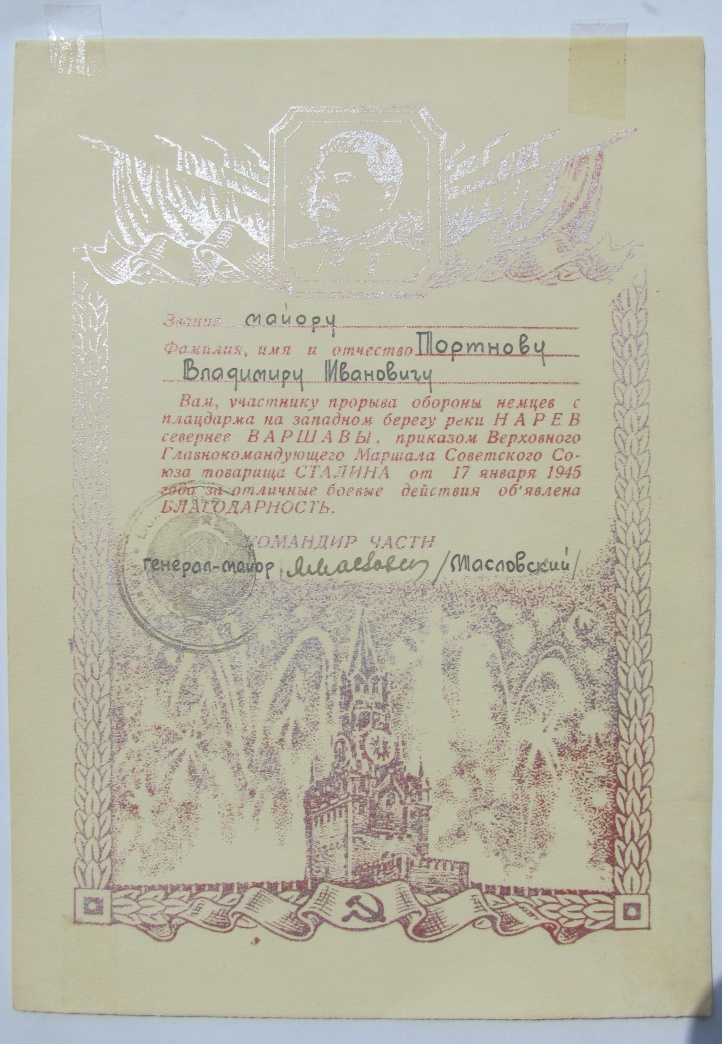 Звание майору
Фамилия, имя и отчество Портнову
Владимиру Ивановичу
Вам, участнику прорыва обороны немцев с
плацдарма на западном берегу реки НАРЕВ
севернее ВАРШАВЫ, приказом Верховного
Главнокомандующего Маршала Советского Со-
юза товарища СТАЛИНА от 17 января 1945
года за отличные боевые действия об'явлена
БЛАГОДАРНОСТЬ.
КОМАНДИР ЧАСТИ
генерал-майор /Масловский/